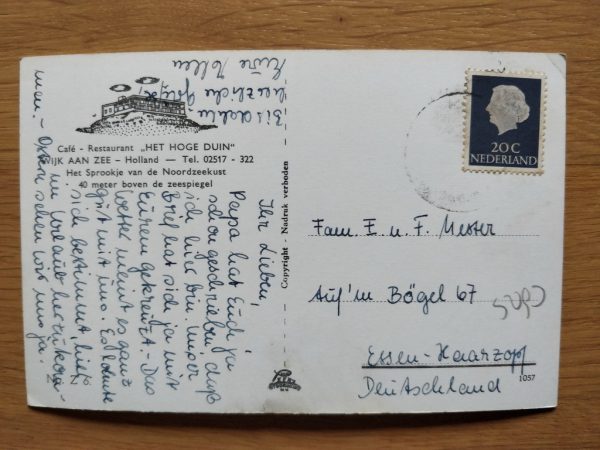 Café - Restaurant „HET HOGE DUIN"
WIJK AAN ZEE – Holland — Tel. 02517 - 322
Het Sprookje van de Noordzeekust
40 meter boven de zeespiegel
Ihr Lieben,
Papa hat Euch ja
schon geschrieben, daß
ich hier bin. Unser
Brief hat sich ja mit
Eurem gekreuzt. - Das
Wetter meint es ganz
gut mit uns. Es lohnte
sich bestimmt, hier
im Urlaub herzukom-
men. - Ostern sehen wir uns ja.
Bis dahin
herzliche Grüße,
Eure
Copyright - Nadruk verboden
20 C
NEDERLAND
Fam. E. u. F. Mester
Auf'm Bögel 67
Essen-Haarzopf
Deutschland
1057